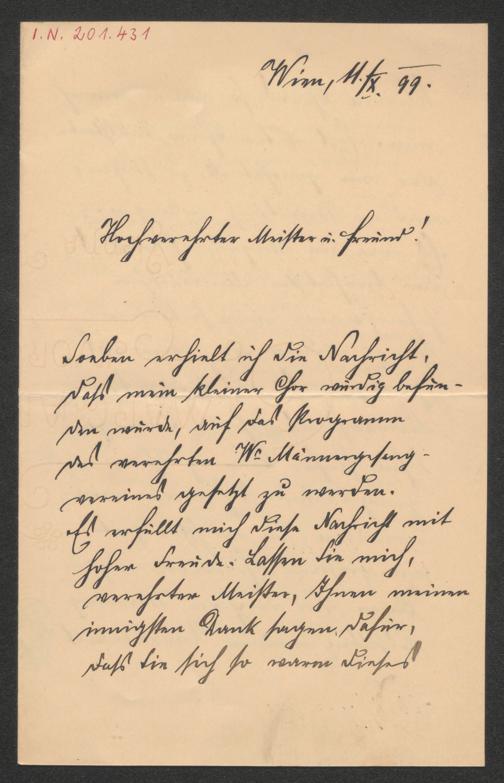 I.N. 201.431
Wien, 11./X. 99.
Hochverehrter Meister u. Freund!
Soeben erhielt ich die Nachricht,
daß mein kleiner Chor würdig befun-
den wurde, auf das Programm
des verehrten Wr Männergesang-
vereines gesetzt zu werden.
Es erfüllt mich diese Nachricht mit
hoher Freude. Lassen Sie mich,
verehrter Meister, Ihnen meinen
innigsten Dank sagen dafür,
daß Sie sich so warm dieses